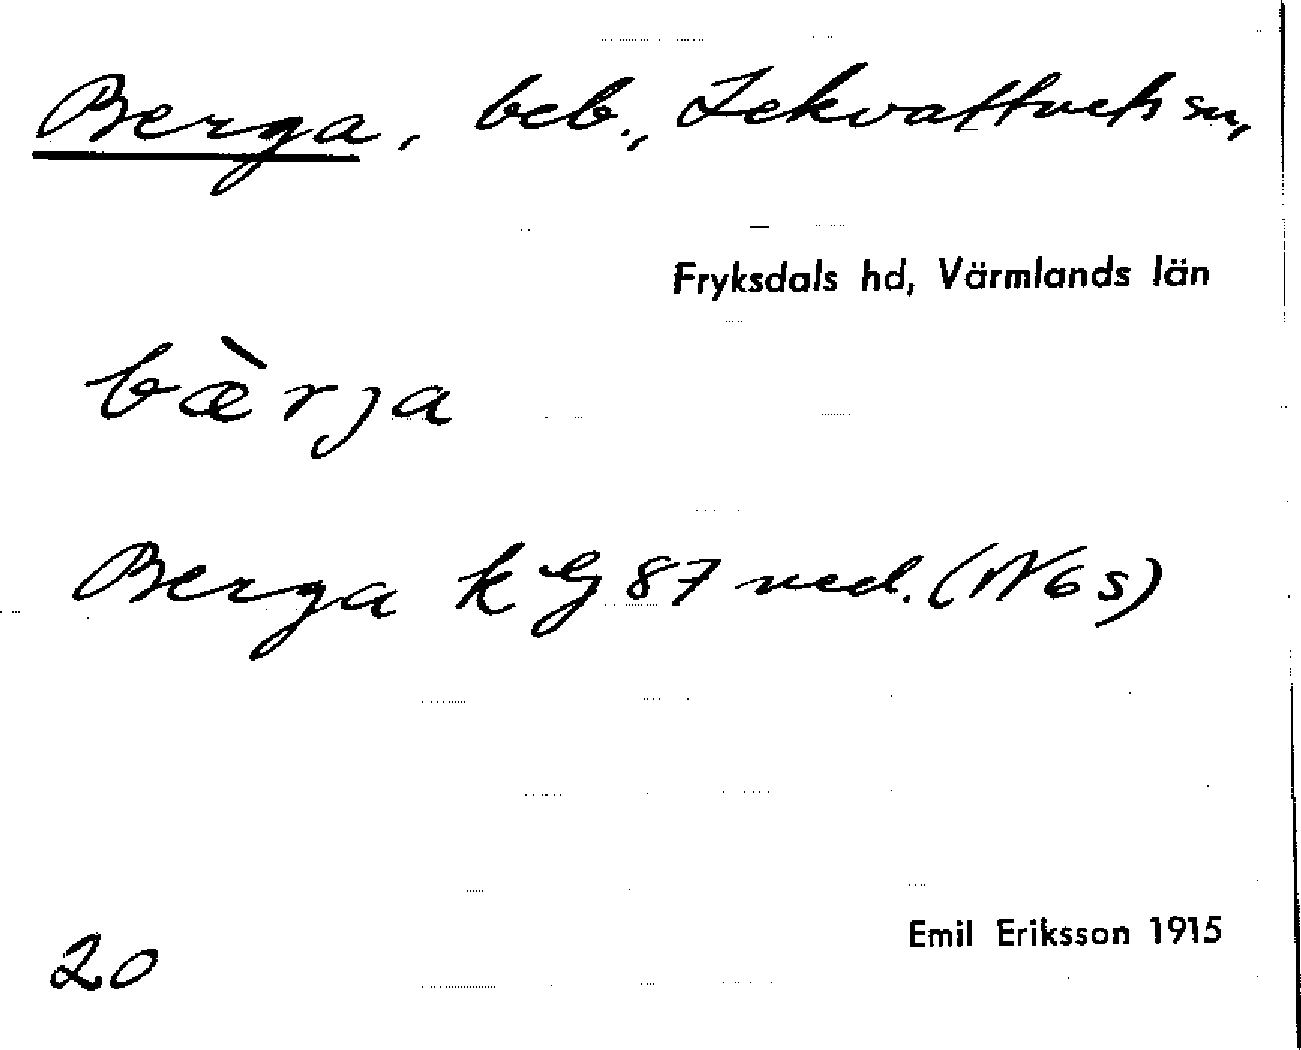 Berga, beb., Lekvattnets sn,
Fryksdals hd, Värmlands län
bæ̀rja
Berga k G 87 ned. (N 6 s)
20
Emil Eriksson 1915